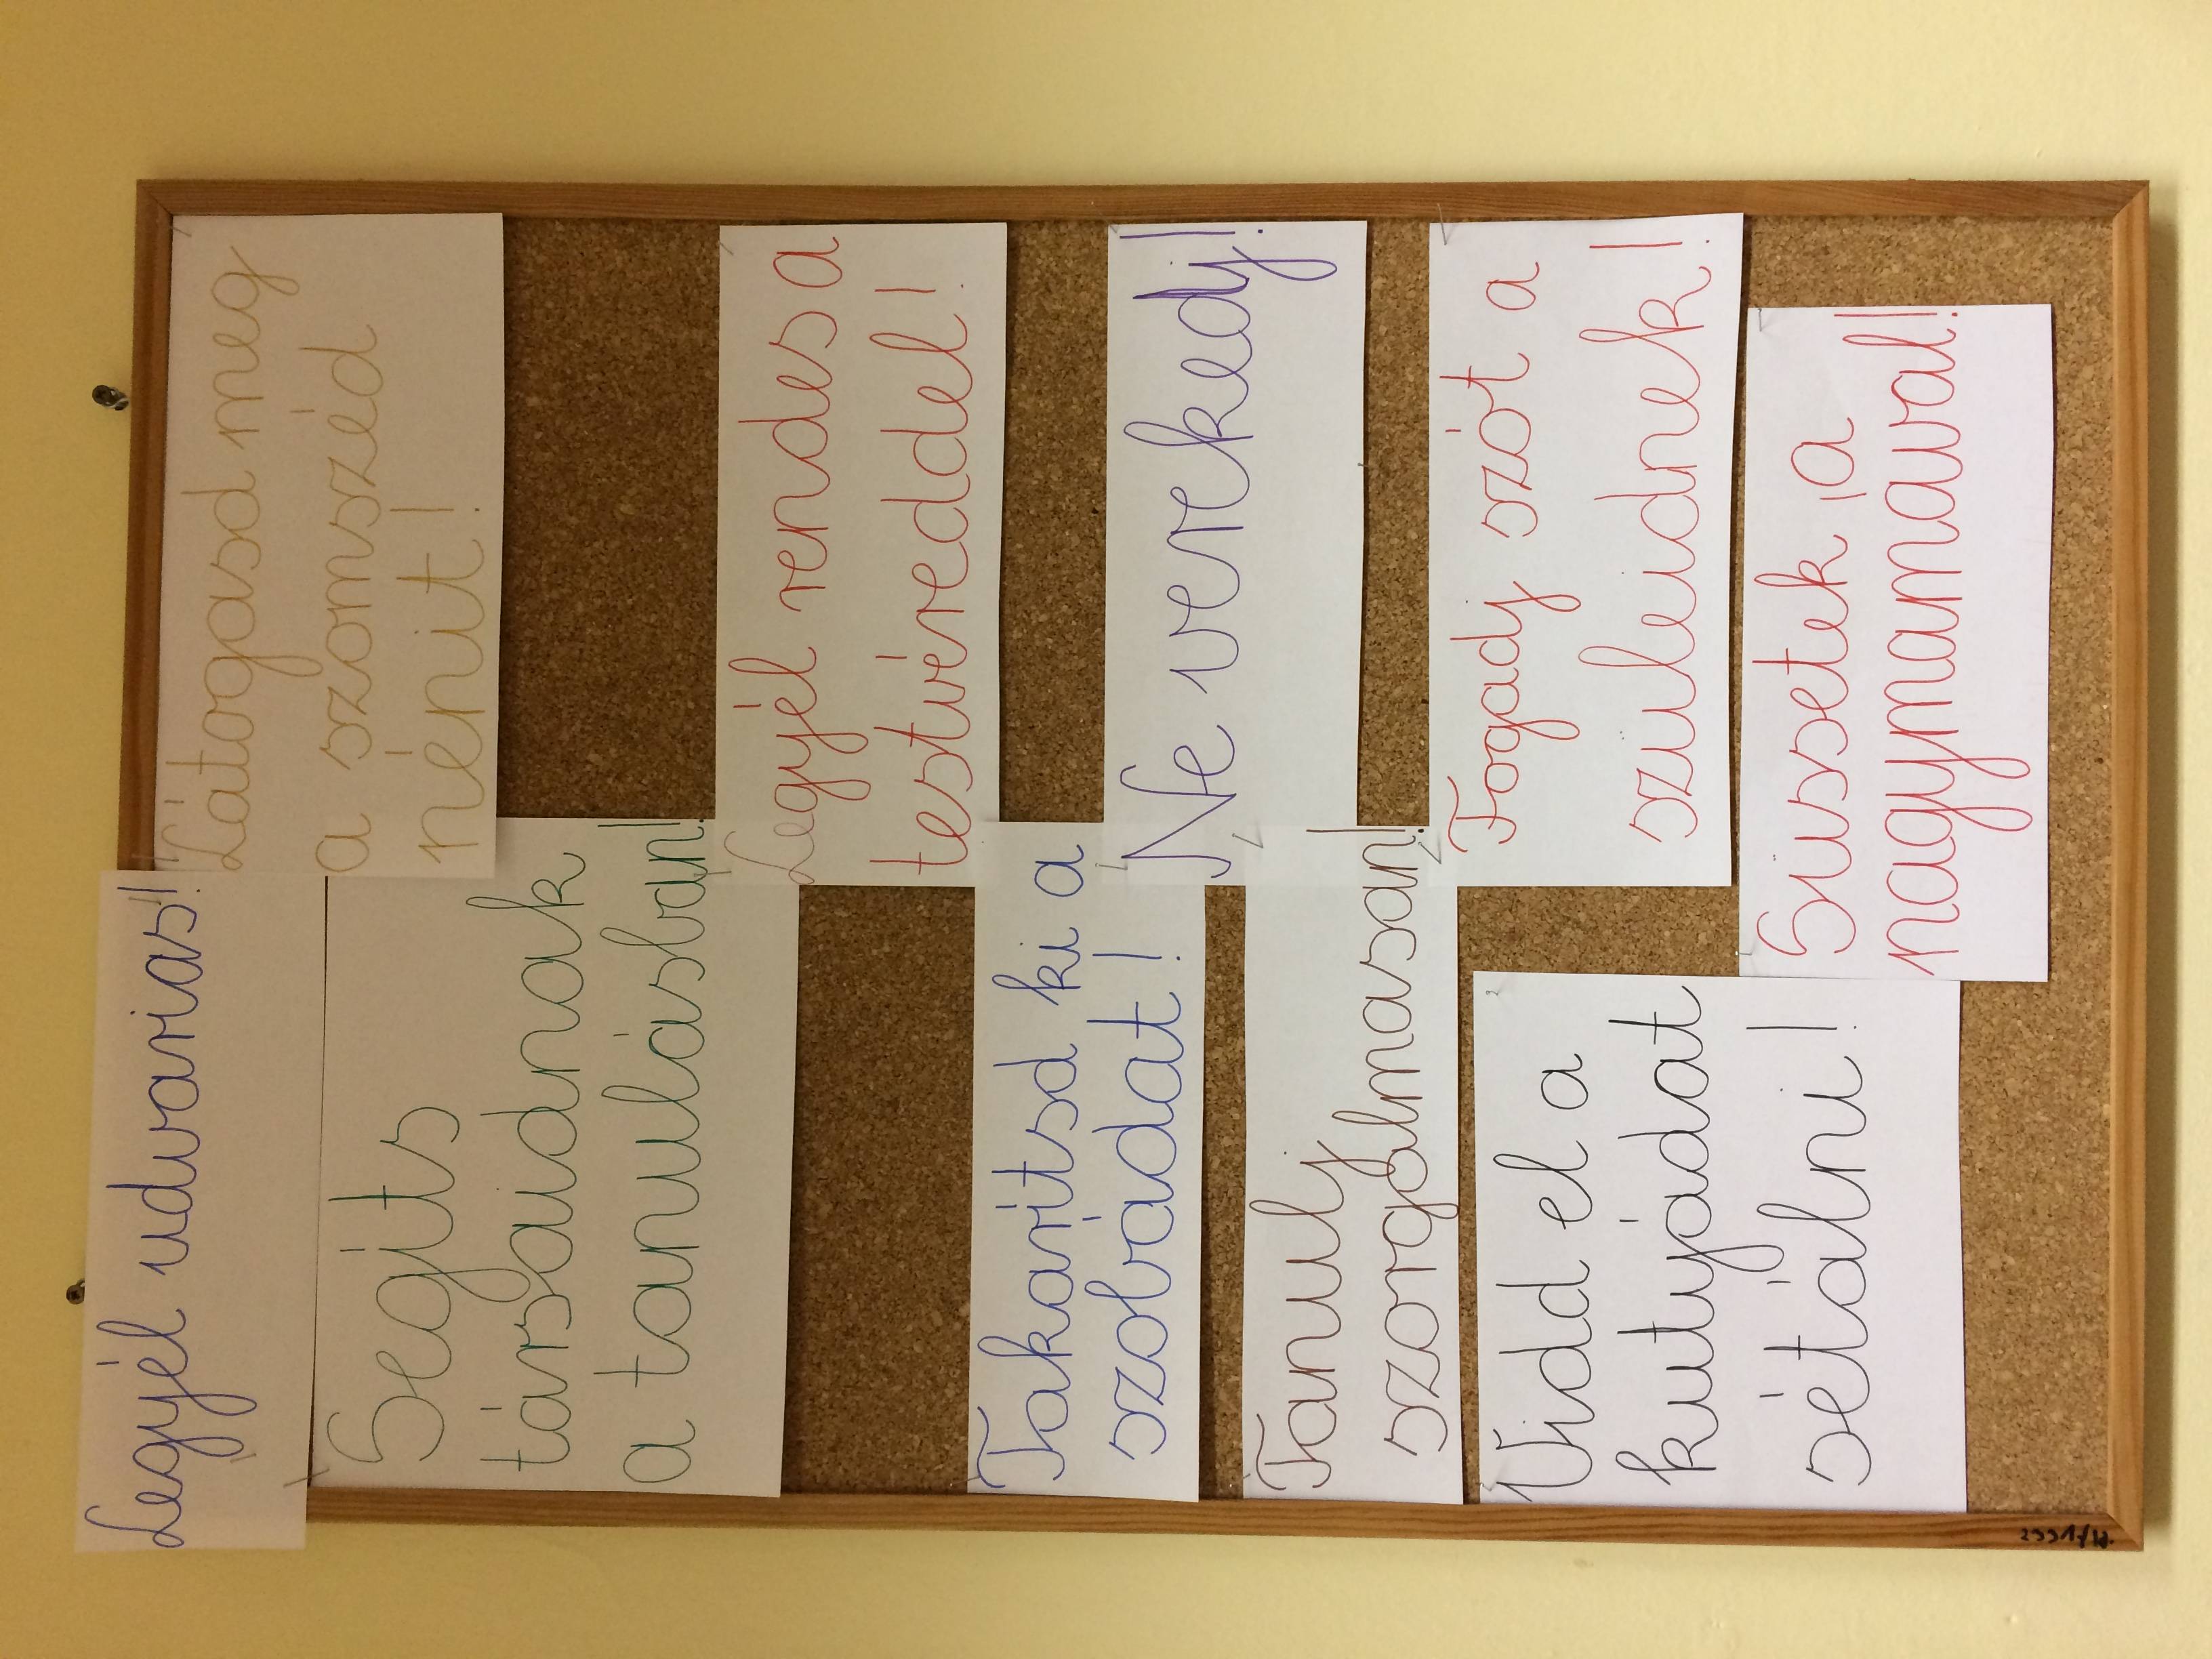 Legyél udvarias!
Segíts
társaidnak
a tanulásban!
Takarítsd ki a
szobádat!
Tanulj
szorgalmasan!
Vidd el a
kutyádat
sétálni!
Látogasd meg
a szomszéd
nénit!
Legyél rendes a
testvéreddel!
Ne verekedj!
Fogadj szót a
szuleidnek!
Sussetek a
nagymamával!